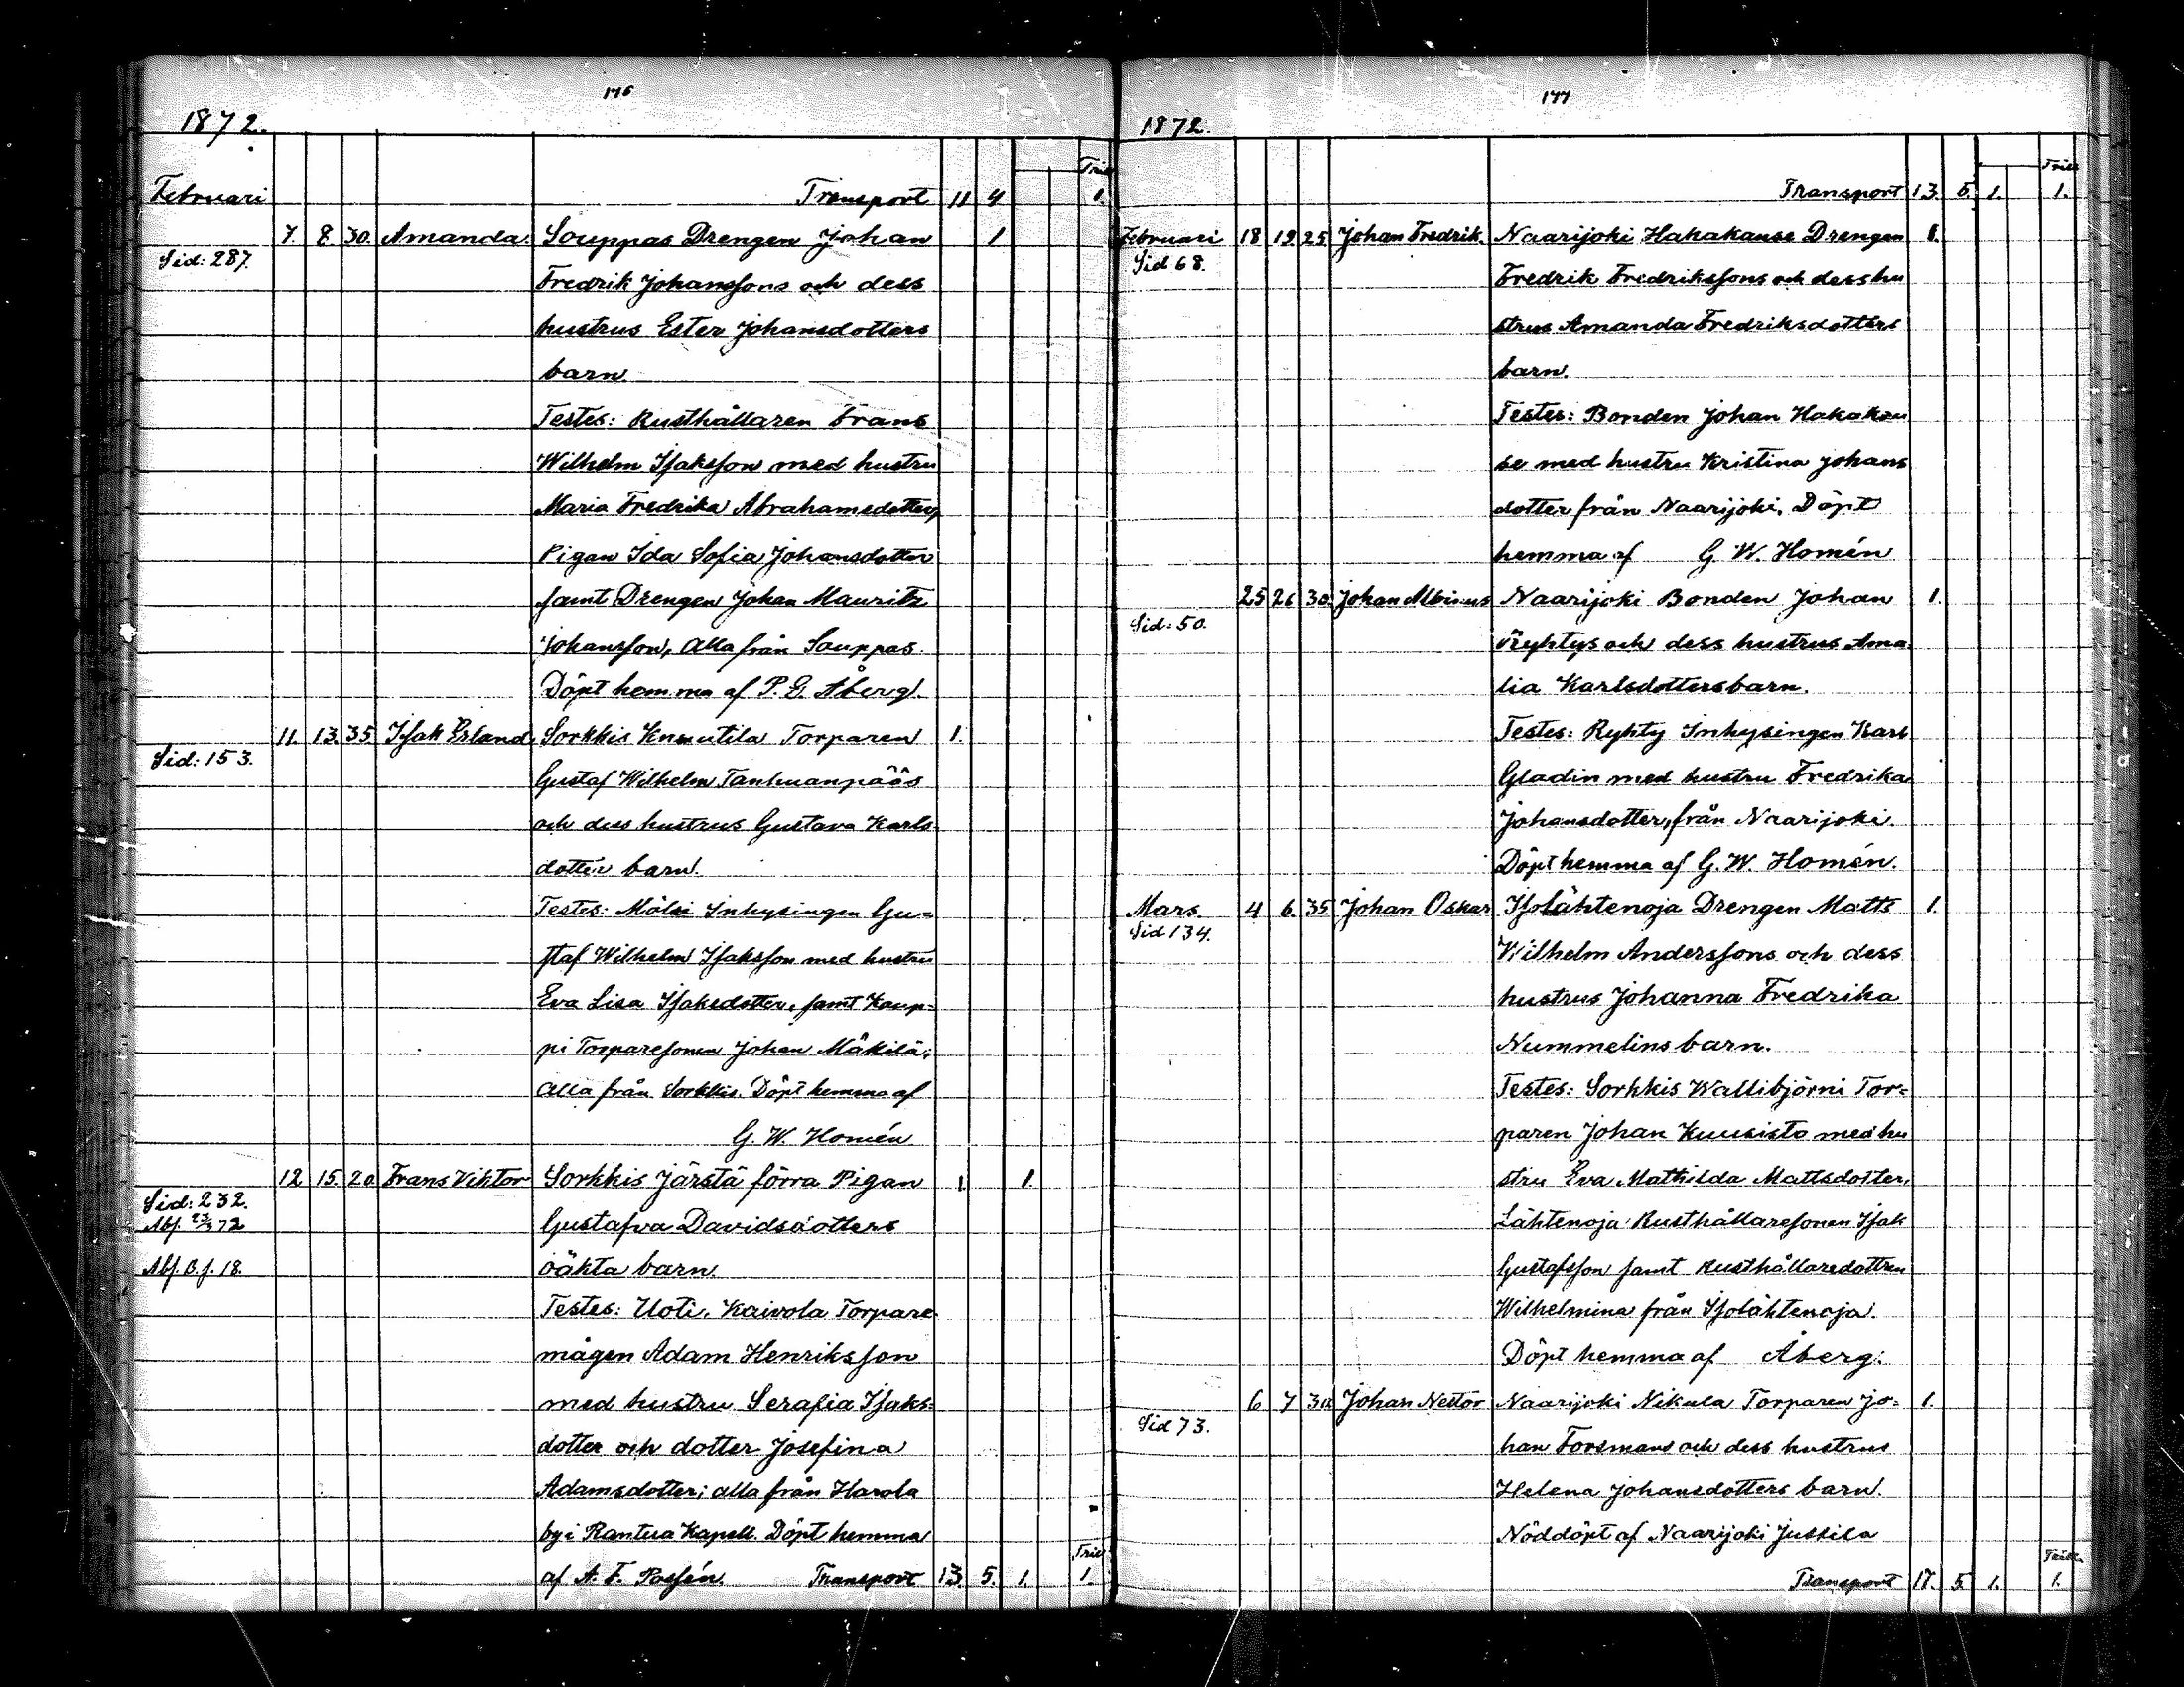 176
1872.
Fria
Februari Transport 11 4 1.
7. 8. 30. Amanda. Souppas Drengen Johan 1
Sid: 287. Fredrik Johanssons och dess
hustrus Ester Johansdotters
barn.
Testes: Rusthållaren Frans
Wilhelm Isaksson med hustru
Maria Fredrika Abrahamsdotter,
Pigan Ida Sofia Johansdotter
samt Drengen Johan Mauritz
Johansson, alla från Souppas.
Döpt hemma af P. G. Åberg.
11. 13. 35 Isak Erland. Sorkkis Knuutila Torparen 1.
Sid: 153. Gustaf Wilhelm Tanhuanpääs
och dess hustrus Gustava Karls
dotter barn.
Testes: Mölsi Inhysingen Gu=
staf Wilhelm Isaksson med hustru
Eva Lisa Isaksdotter, samt Kaup=
pi Torparesonen Johan Mäkilä;
alla från Sorkkis. Döpt hemma af
G. W. Homén
12 15. 20. Frans Viktor Sorkkis Järstä förra Pigan 1. 1.
Sid: 232. Gustafva Davidsdotters
Abs. 23/3 72
Abs. B. f. 18. oäkta barn.
Testes: Uoti, Kaivola Torpare
mågen Adam Henriksson
med hustru Serafia Isaks=
dotter och dotter Josefina
Adamsdotter; alla från Harola
by i Rantua Kapell. Döpt hemma
Fria
af A. F. Transport 13. 5. 1. 1.
177
1872.
Fria
Transport 13. 5. 1. 1.
Februari 18 19 25 Johan Fredrik. Naarijoki Hakakause Drengen 1.
Sid 68. Fredrik Fredrikssons och dess hu
strus Amanda Fredriksdotters
barn.
Testes: Bonden Johan Hakakau
se med hustru Kristina Johans
dotter från Naarijoki. Döpt
hemma af G. W. Homén
25 26 30. Johan Albinus Naarijoki Bonden Johan 1.
Sid: 50. Ryhtys och dess hustrus Ama
lia Karlsdotters barn.
Testes: Ryhty Inhysingen Karl
Gladin med hustru Fredrika
Johansdotter, från Naarijoki.
Döpt hemma af G. W. Homén.
Mars. 4 6. 35. Johan Oskar Isolähtenoja Drengen Matts 1.
Sid 134. Wilhelm Anderssons och dess
hustrus Johanna Fredrika
Nummelins barn.
Testes: Sorkkis Wallibjörni Tor=
paren Johan Kuusisto med hu
stru Eva Mathilda Mattsdotter,
Lähtenoja Rusthållaresonen Isak
Gustafsson samt Rusthållaredottren
Wilhelmina från Isolähtenoja.
Döpt hemma af Åberg.
6 7 30 Johan Nestor Naarijoki Nikula Torparen Jo= 1.
Sid 73. han Forsmans och dess hustrus
Helena Johansdotters barn.
Nöddöpt af Naarijoki Jussila
Fria
Transport 17. 5. 1. 1.